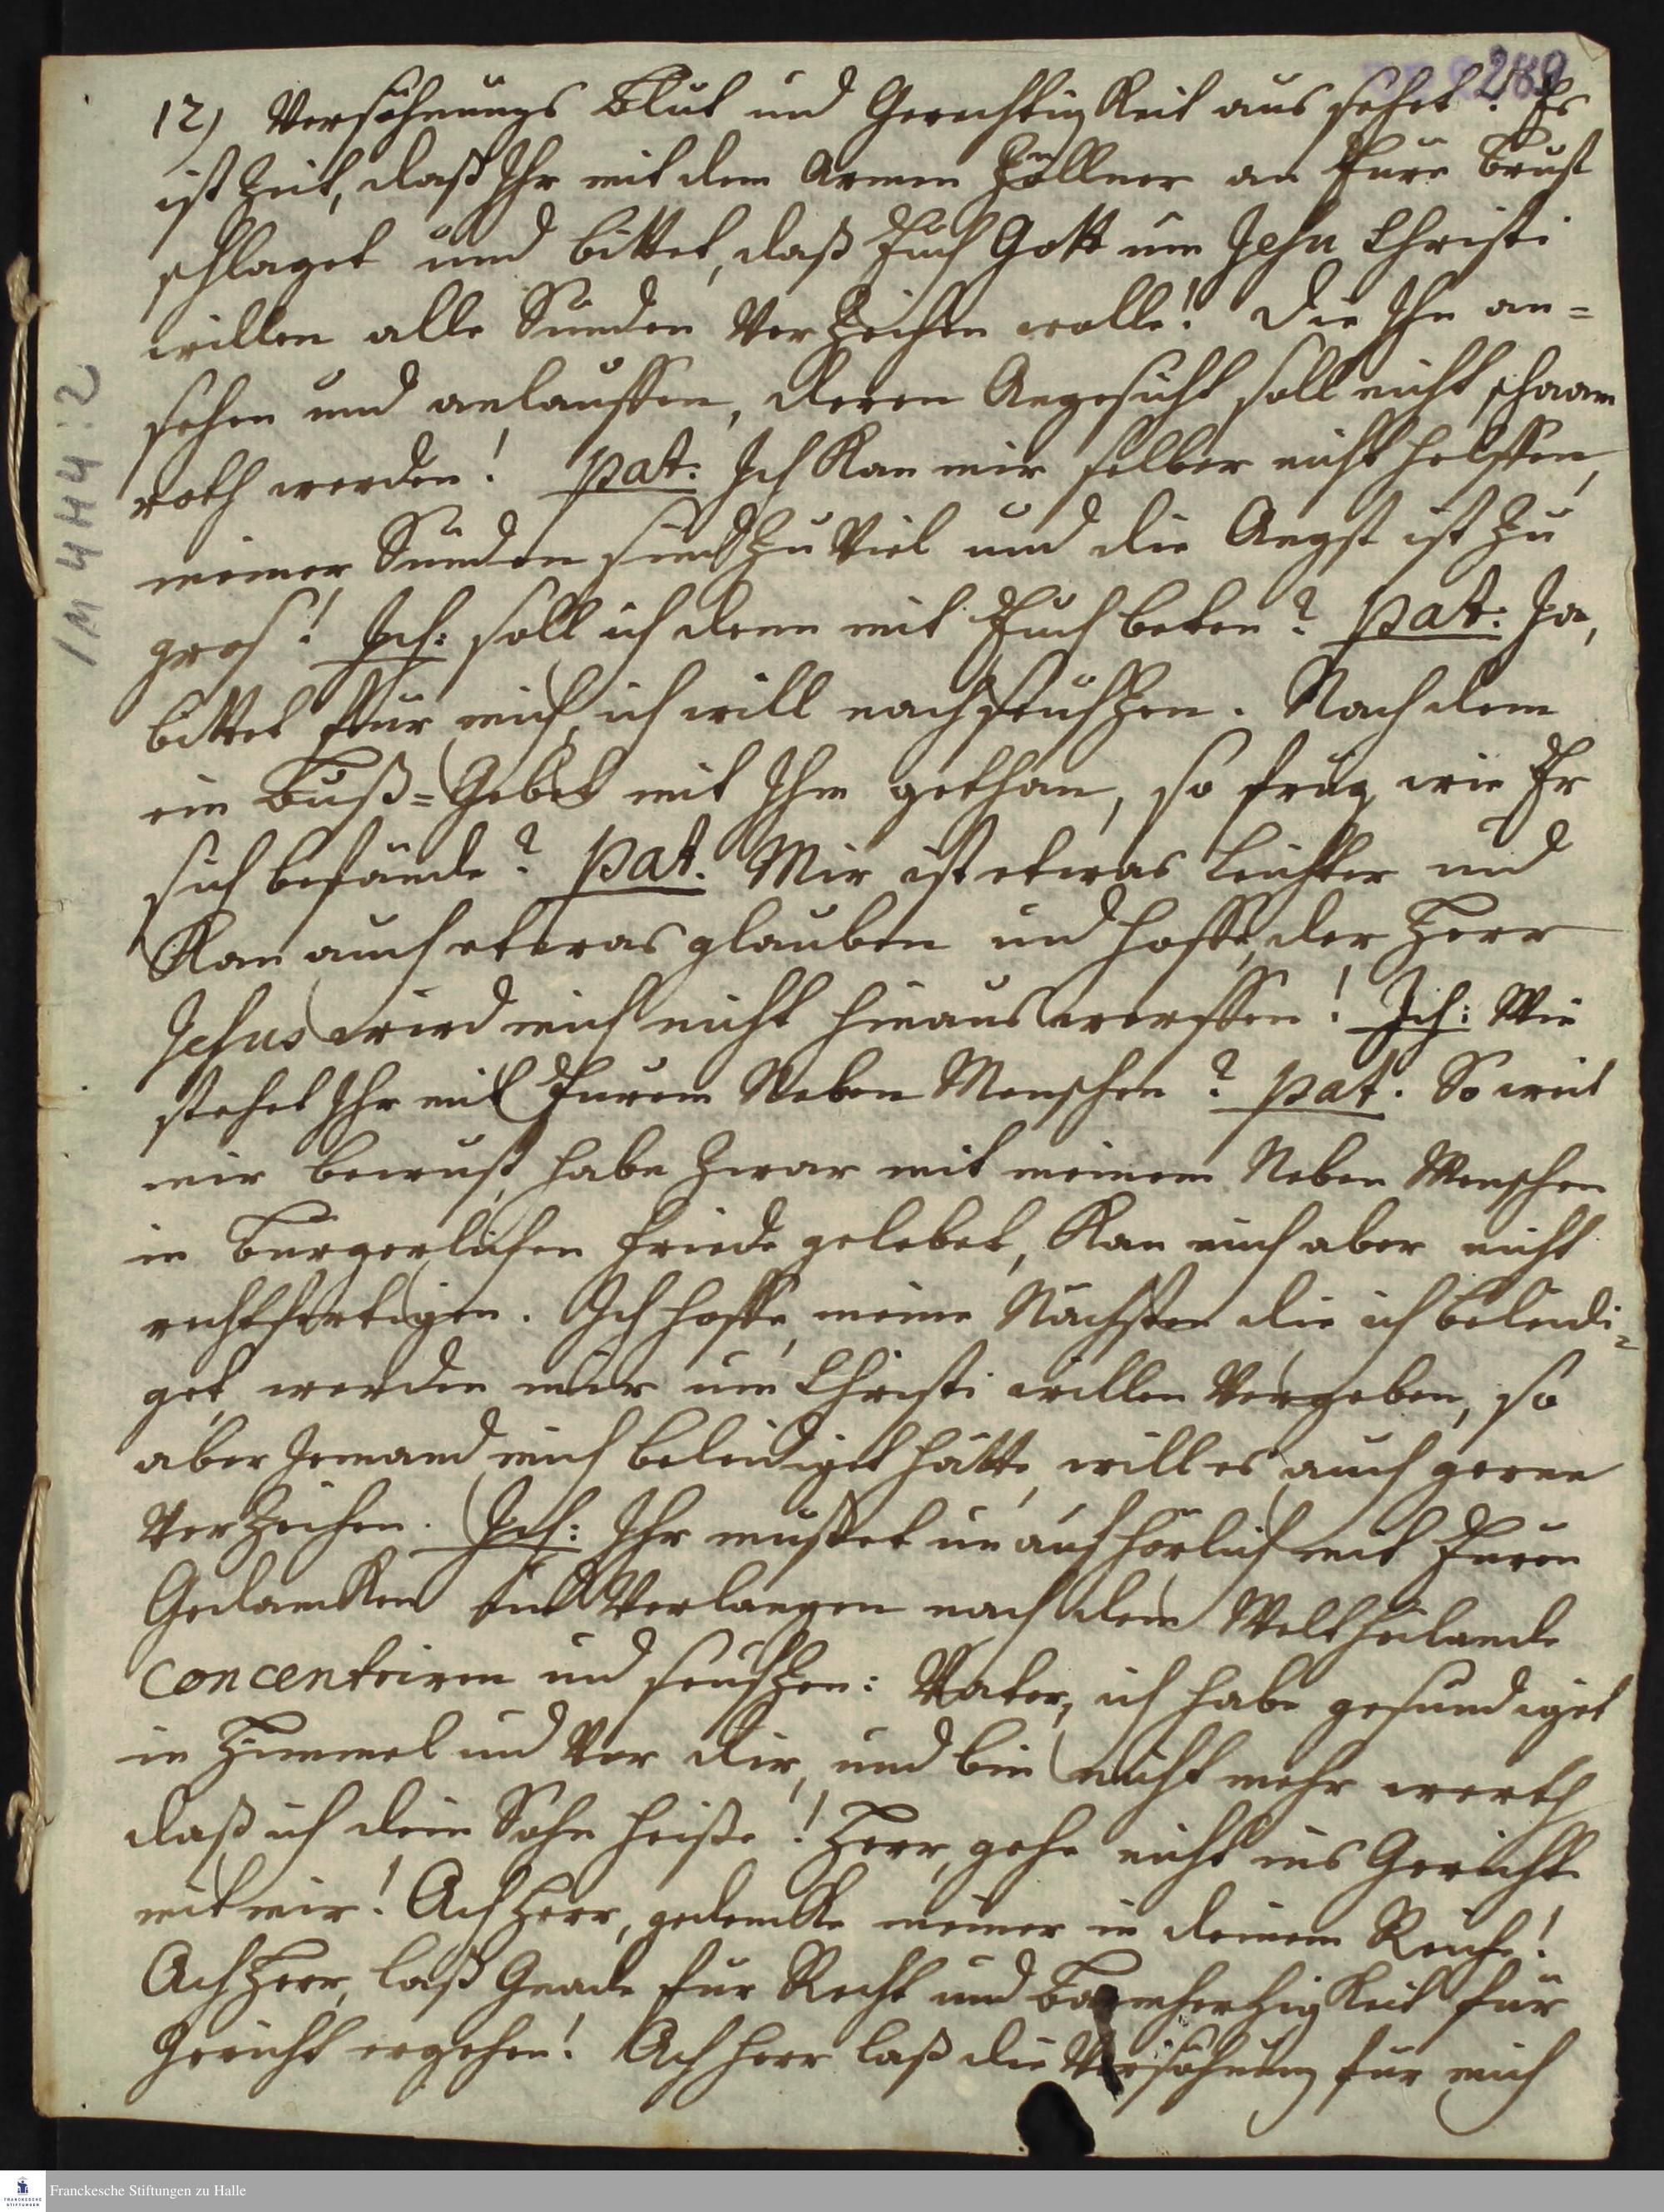 289
12) Versöhnungs Blut und Gerechtigkeit aus sehet! Es
ist Zeit, daß Ihr mit dem Armen Zöllner an Eure Brust
schlaget und bittet, daß Euch Gott um Jesu Christi
willen alle Sünden Verzeihen wolle! Die Ihn an=
sehen und anlauffen, deren Angesicht soll nicht schaam
roth werden! pat: Ich Kan mir selber nicht helffen,
meiner Sünden sind zu Viel und die Angst ist zu
gros! Ich: soll ich denn mit Euch beten? pat: Ja,
bittet für mich, ich will nachseufzen. Nach dem
ein Buß=Gebet mit Ihm gethan, so frug, wie Er
sich befände? pat. Mir ist etwas leichter und
Kan auch etwas glauben und hoffe, der Herr
Jesus wird mich nicht hinaus werffen! Ich: Wie
stehet Ihr mit Eurem Neben Menschen? pat. So weit
mir bewust, habe zwar mit meinem Neben Menschen
in Burgerlichen Friede gelebet, Kan mich aber nicht
rechtfertigen. Ich hoffe, meine Nächsten die ich beleidi=
get, werden mir um Christi willen Vergeben, so
aber Jemand mich beleidiget hätte, will es auch gerne
Verzeihen. Ich: Ihr müsset unaufhörlich mit Euren
Gedancken und Verlangen nach dem Weltheilande
concentriren und seufzen: Vater, ich habe gesundiget
in Himmel und Vor dir, und bin nicht mehr werth
daß ich dein Sohn heiße! Herr, gehe nicht ins Gericht
mit mir! Ach Herr, gedencke meiner in deinem Reiche!
Ach Herr, laß Gnade für Recht und Barmhertzigkeit für
Gericht ergehen! Ach Herr laß die Versöhnung für mich
1M 4H4:2
Franckesche Stiftungen zu Halle